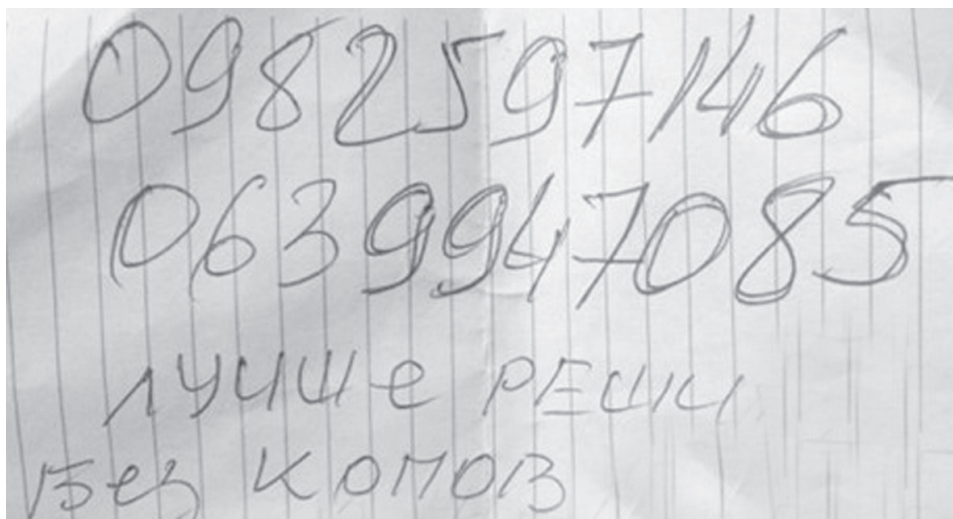 0982597146
0639947085
лучше РЕШИ
Без КОПОВ